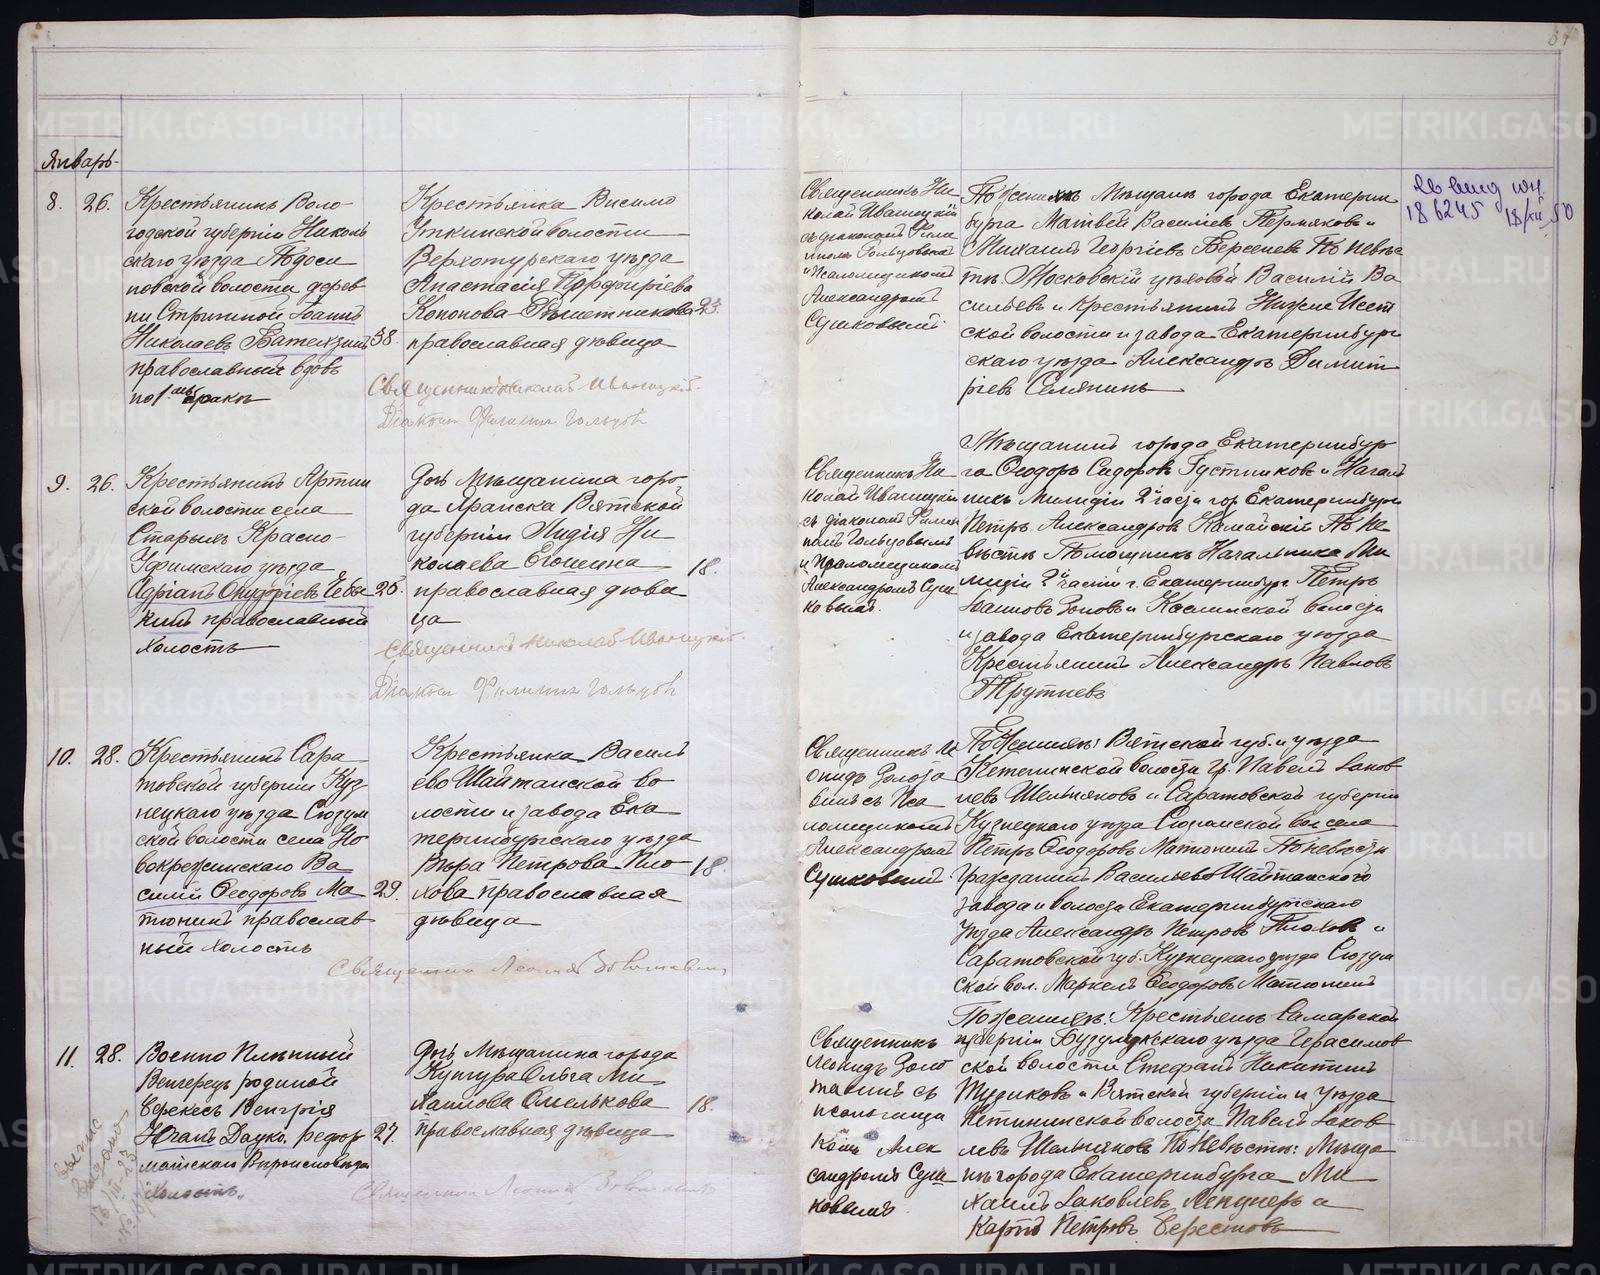 Январь
8. 26.
Крестьянинъ Воло-
годской губернiи Николь
скаго уѣзда Подоси
новской волости дерев
ни Стриганой Iоаннъ
Николаевъ 38.
православный вдовъ
по 1мъ бракѣ
Крестьянка Висимо
Уткинской волости
Верхотурскаго уѣзда
Анастасiя Порфирiева
Кононова-Рѣшетникова 23.
православная дѣвица
Священникъ Николай Иваницкiй.
Дiаконъ Филиппъ Гольцовъ
Священникъ Ни
колай Иваницкiй
съ дiакономъ Фили
ппомъ Гольцовымъ
и Псаломщикомъ
Александромъ
Сушковымъ
По женихѣ Мѣщане города Екатерин
бурга Матвей Василiевъ Пермяковъ и
Михаилъ Георгiевъ Берсеневъ По невѣс
тѣ. Московскiй цѣховой Василiй Ва
сильевъ и Крестьянинъ Нижне Исет
ской волости и завода Екатеринбург
скаго уѣзда Александръ Димит
рiевъ Селянинъ
9. 26.
Крестьянинъ Артин
ской волости села
Старыхъ Красно-
Уфимскаго уѣзда
Адрiанъ 25.
православный
холостъ
Дочь Мѣщанина горо-
да Яранска Вятской
губернiи Лидiя Ни
колаева Егошина 18.
православная дѣви
ца
Священникъ Николай Иваницкiй.
Дiаконъ Филиппъ Гольцовъ
Священникъ Ни
колай Иваницкiй
съ дiакономъ Филип
помъ Гольцовымъ
и Псаломщикомъ
Александромъ Суш
ковымъ.
Мѣщанинъ города Екатеринбур
га Ѳеодоръ Сидоровъ и Началь
никъ Милицiи 2й части гор. Екатеринбурга
Петръ Александровъ По не
вѣстѣ Помощникъ Начальника Ми
лицiи 2й части г. Екатеринбург Петръ
Iоанновъ Поповъ и Каслинской волости
и завода Екатеринбургскаго уѣзда
Крестьянинъ Александръ Павловъ
Трутневъ
10. 28.
Крестьянинъ Сара
товской губернiи Куз
нецкаго уѣзда Сюзюм
ской волости села Но
вокрежимскаго Ва
силiй Ѳеодоровъ Ма 29.
тюнинъ православ
ный холостъ
Крестьянка Василь
ево Шайтанской во
лости и завода Ека
теринбургскаго уѣзда
Вѣра Петрова Пло 18.
хова православная
дѣвица
Священникъ Леонидъ Золотавинъ
Священникъ Ле
онидъ Золота
винъ съ Пса
ломщикомъ
Александромъ
Сушковымъ
По женихѣ: Вятской губ. и уѣзда
волости гр. Павелъ Iаков
левъ Шельняковъ и Саратовской губернiи
Кузнецкаго уѣзда Сюзюмской вол села
Петръ Ѳеодоровъ Матюнинъ По невѣстѣ
Гражданинъ Васильево Шайтанскаго
завода и волости Екатеринбургскаго
уѣзда Александръ Петровъ Плоховъ и
Саратовской губ. Кузнецкаго уѣзда Сюзюм
ской вол. Маркелъ Ѳеодоровъ Матюнинъ
11. 28.
Военно Плѣнный
Венгерецъ родиной
Венгрiя
27.
Вѣроисповѣда
Холостъ.
Дочь Мѣщанина города
Кунгура Ольга Ми
хаилова Омелькова 18.
православная дѣвица
Священникъ Леонидъ Золотавинъ
Священникъ
Леонидъ Золо
тавинъ съ
псаломщи
комъ Алек
сандромъ Суш
ковымъ
По женихѣ: Крестьяне Самарской
губернiи Бузулукскаго уѣзда Герасимов
ской волости Стефанъ Никитинъ
и Вятской губернiи и Уѣзда
волости Павелъ Iаков
левъ Шельняковъ По Невѣстѣ: Мѣща
не города Екатеринбурга Ми
хаилъ Iаковлевъ и
Карпъ Петровъ Берестовъ
METRIKI.GASO-URAL.RU